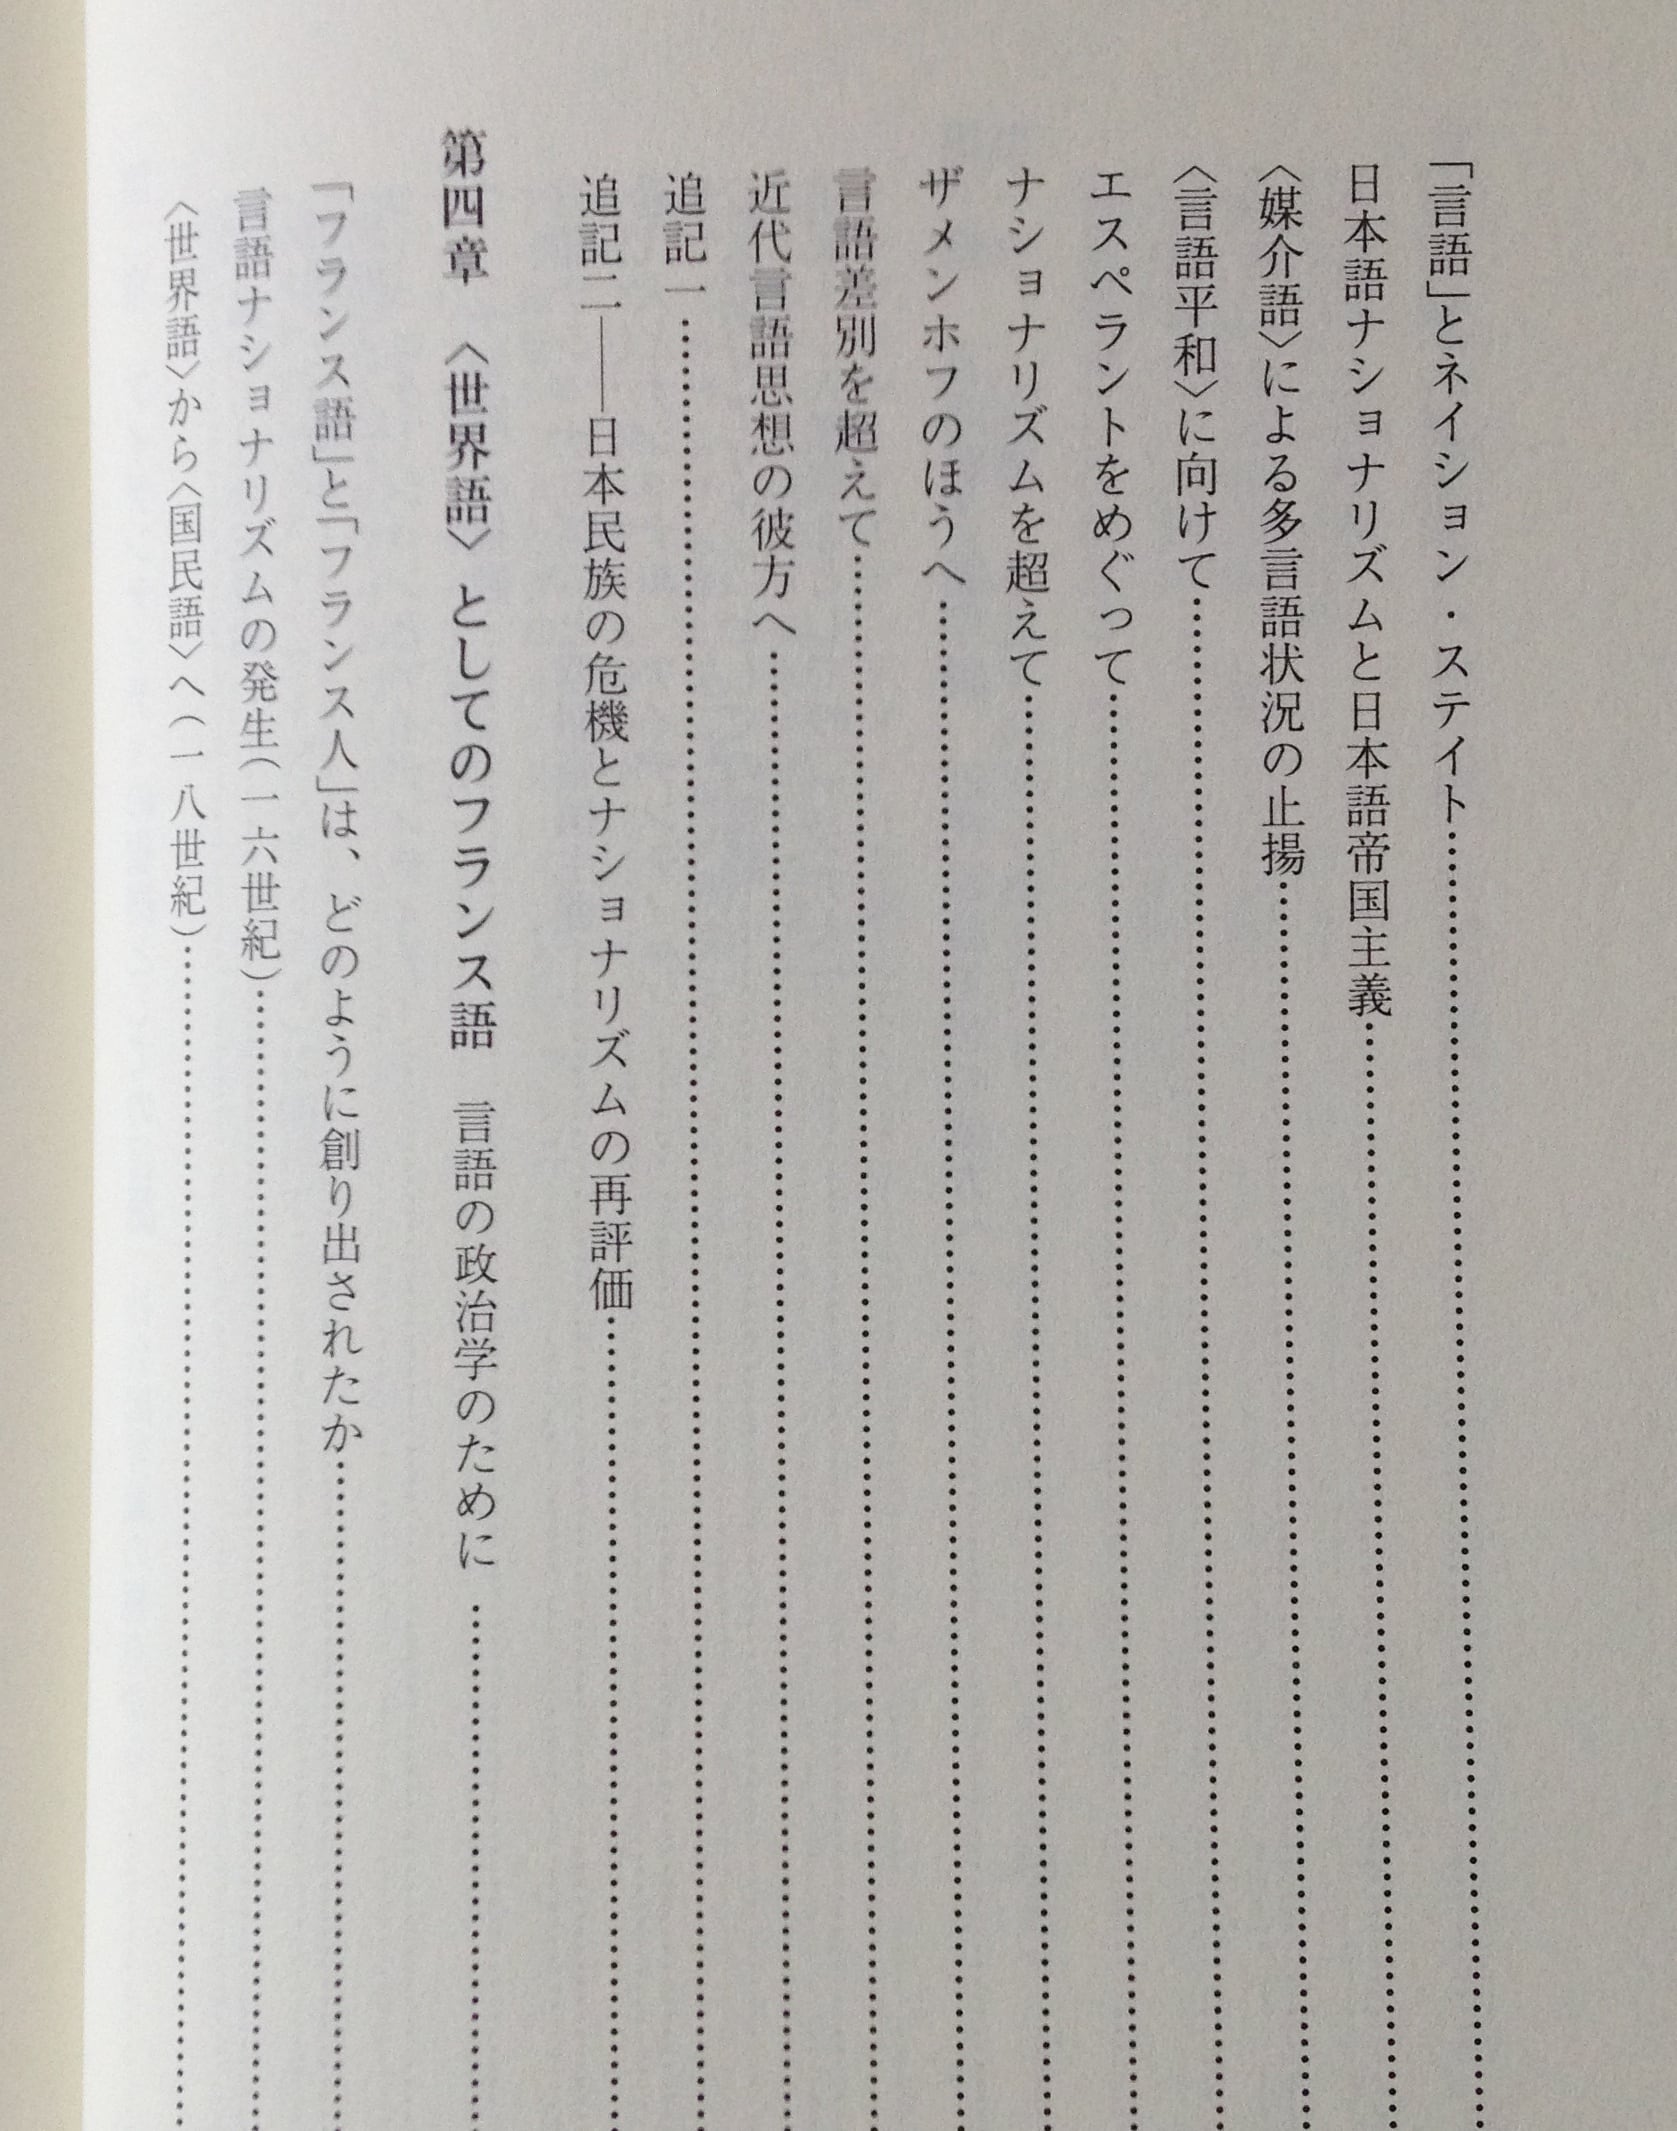 「言語」とネイション・ステイト……………………
日本語ナショナリズムと日本語帝国主義……………………
〈媒介語〉による多言語状況の止揚……………………
〈言語平和〉に向けて……………………
エスペラントをめぐって……………………
ナショナリズムを超えて……………………
ザメンホフのほうへ……………………
言語差別を超えて……………………
近代言語思想の彼方へ……………………
追記一……………………
追記二――日本民族の危機とナショナリズムの再評価……………………
第四章 〈世界語〉としてのフランス語 言語の政治学のために……………………
「フランス語」と「フランス人」は、どのように創り出されたか……………………
言語ナショナリズムの発生(一六世紀)……………………
〈世界語〉から〈国民語〉へ(一八世紀)……………………